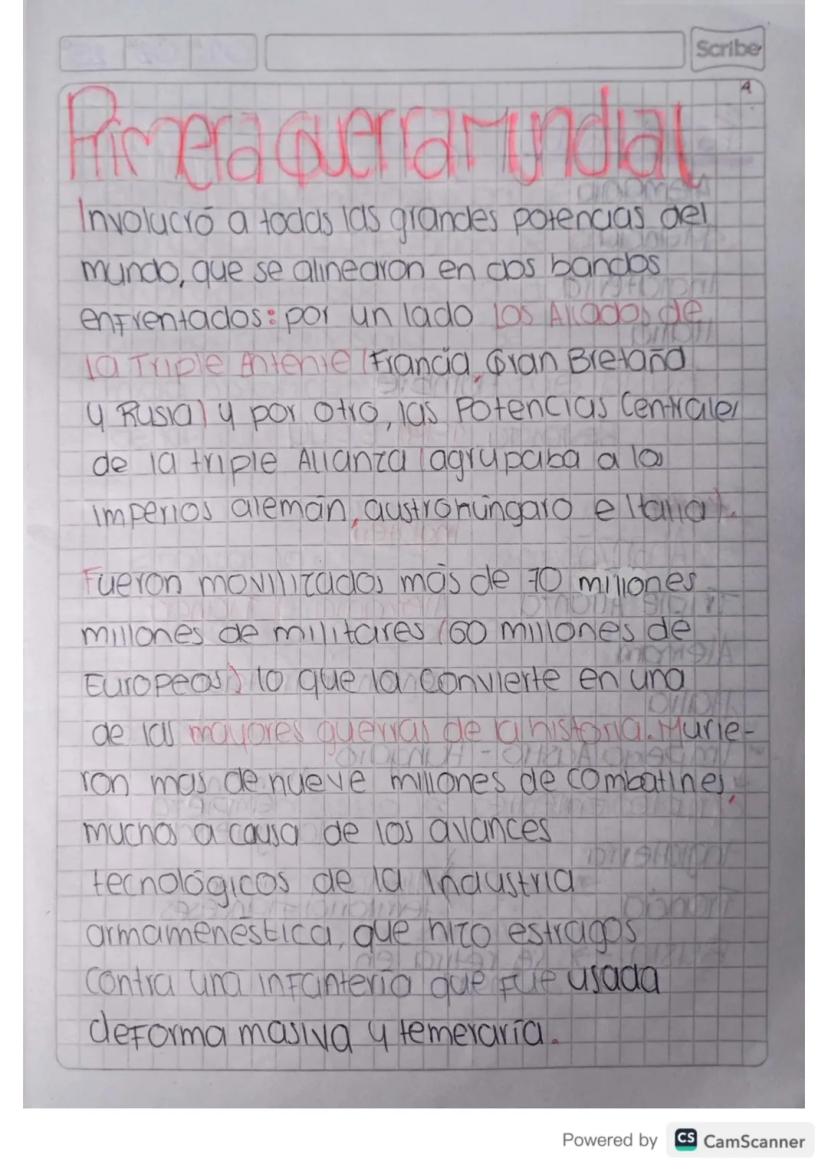 Scribe
Primera Guerra Mundial
Involucró a todas las grandes potencias del
mundo, que se alinearon en dos bandos
enfrentados: por un lado los Aliados de
la Triple Entente (Francia, Gran Bretaña
y Rusia) y por otro, las Potencias Centrales
de la triple Alianza (agrupaba a los
imperios alemán, austrohúngaro e Italia).
Fueron movilizados más de 70 millones
millones de militares (60 millones de
Europeos) lo que la convierte en una
de las mayores guerras de la historia. Murie-
ron mas de nueve millones de combatines,
muchos a causa de los avances
tecnológicos de la industria
armamenéstica, que hizo estragos
contra una infantería que fue usada
deforma masiva y temeraria.
Powered by CS CamScanner